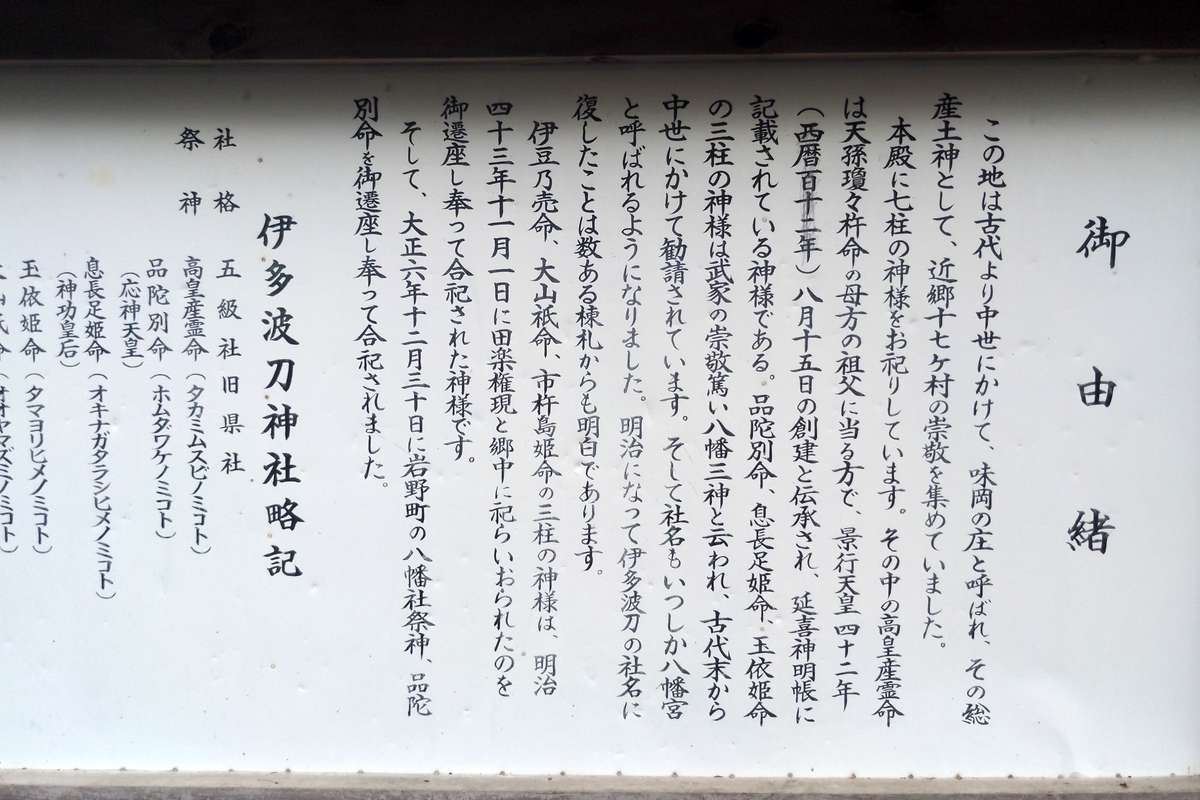 御由緒
この地は古代より中世にかけて、味岡の庄と呼ばれ、その総
産土神として、近郷十七ケ村の崇敬を集めていました。
本殿に七柱の神様をお祀りしています。その中の高皇産霊命
は天孫瓊々杵命の母方の祖父に当る方で、景行天皇四十二年
（西暦百十二年）八月十五日の創建と伝承され、延喜神明帳に
記載されている神様である。品陀別命、息長足姫命、玉依姫命
の三柱の神様は武家の崇敬篤い八幡三神と云われ、古代末から
中世にかけて勧請されています。そして社名もいつしか八幡宮
と呼ばれるようになりました。明治になって伊多波刀の社名に
復したことは数ある棟札からも明白であります。
伊豆乃売命、大山祇命、市杵島姫命の三柱の神様は、明治
四十三年十一月一日に田楽権現と郷中に祀らいおられたのを
御遷座し奉って合祀された神様です。
そして、大正六年十二月三十日に岩野町の八幡社祭神、品陀
別命を御遷座し奉って合祀されました。
伊多波刀神社略記
社格 五級社旧県社
祭神 高皇産霊命（タカミムスビノミコト）
品陀別命（ホムダワケノミコト）
（応神天皇）
息長足姫命（オキナガタラシヒメノミコト）
（神功皇后）
玉依姫命（タマヨリヒメノミコト）
（オオヤマズミノミコト）